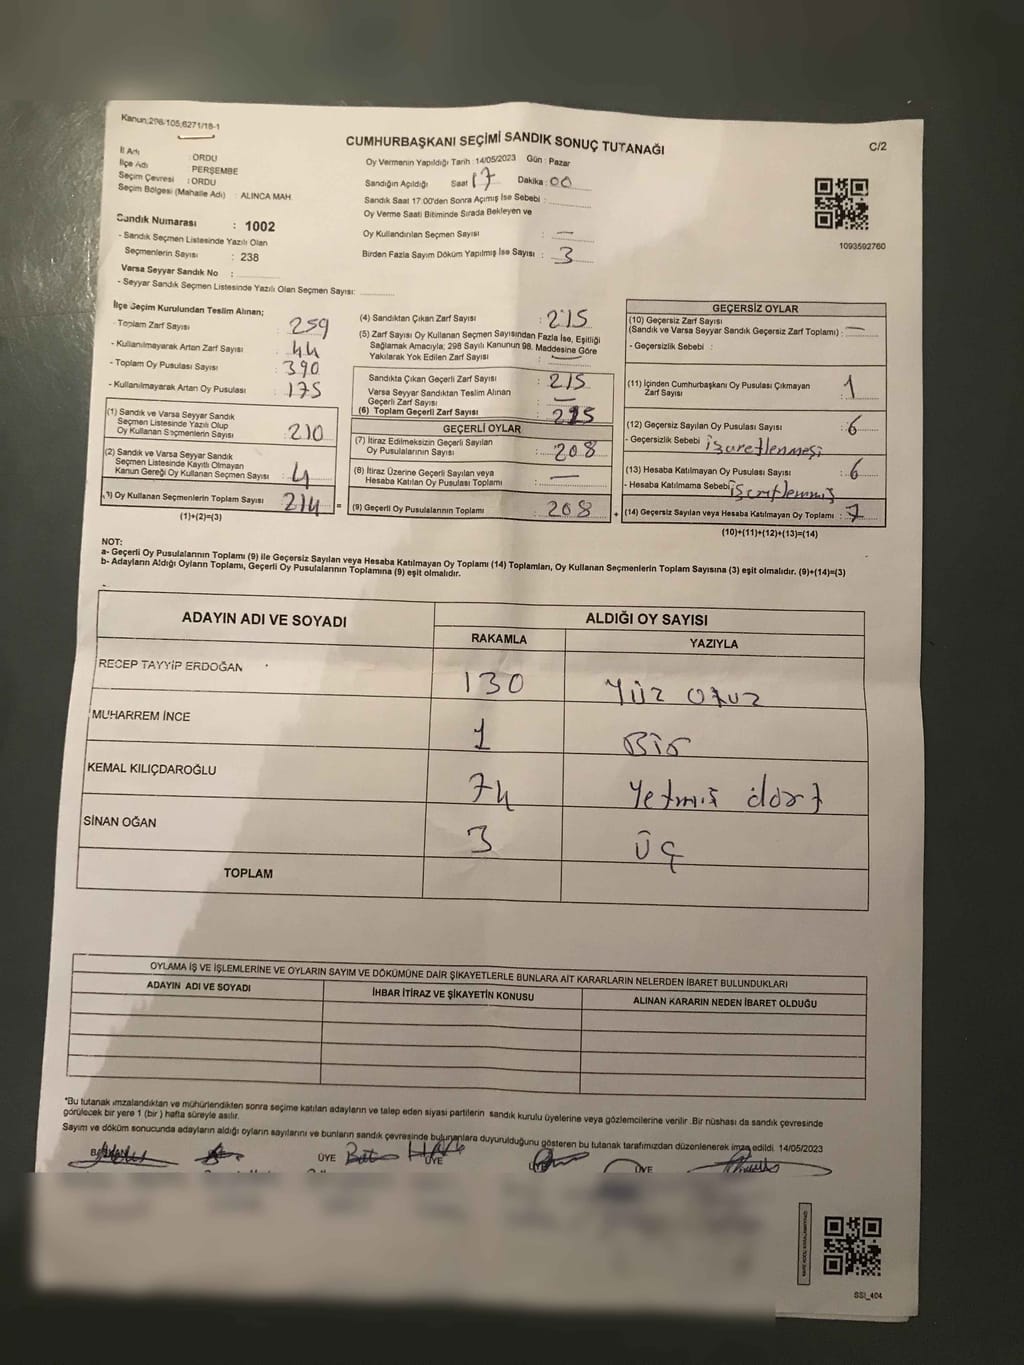 Kanun;298/105,6271/18-1
CUMHURBAŞKANI SEÇİMİ SANDIK SONUÇ TUTANAĞI
C/2
İl Adı : ORDU
İlçe Adı PERŞEMBE
Seçim Çevresi : ORDU
Seçim Bölgesi (Mahalle Adı) : ALINCA MAH.
Sandık Numarası : 1002
- Sandık Seçmen Listesinde Yazılı Olan
Seçmenlerin Sayısı : 238
Varsa Seyyar Sandık No :
- Seyyar Sandık Seçmen Listesinde Yazılı Olan Seçmen Sayısı:
Oy Vermenin Yapıldığı Tarih : 14/05/2023 Gün : Pazar
Sandığın Açıldığı Saat 17 Dakika : 00
Sandık Saat 17.00'den Sonra Açımış İse Sebebi :
Oy Verme Saati Bitiminde Sırada Bekleyen ve
Oy Kullandırılan Seçmen Sayısı : —
Birden Fazla Sayım Döküm Yapılmış İse Sayısı : 3
1093592760
İlçe Seçim Kurulundan Teslim Alınan;
- Toplam Zarf Sayısı : 259
- Kullanılmayarak Artan Zarf Sayısı : 44
- Toplam Oy Pusulası Sayısı : 390
- Kullanılmayarak Artan Oy Pusulası : 175
(1) Sandık ve Varsa Seyyar Sandık
Seçmen Listesinde Yazılı Olup
Oy Kullanan Seçmenlerin Sayısı : 210
(2) Sandık ve Varsa Seyyar Sandık
Seçmen Listesinde Kayıtlı Olmayan
Kanun Gereği Oy Kullanan Seçmen Sayısı : 4
(3) Oy Kullanan Seçmenlerin Toplam Sayısı : 214 =
(1)+(2)=(3)
(4) Sandıktan Çıkan Zarf Sayısı : 215
(5) Zarf Sayısı Oy Kullanan Seçmen Sayısından Fazla İse, Eşitliği
Sağlamak Amacıyla; 298 Sayılı Kanunun 98. Maddesine Göre
Yakılarak Yok Edilen Zarf Sayısı : —
Sandıkta Çıkan Geçerli Zarf Sayısı : 215
Varsa Seyyar Sandıktan Teslim Alınan
Geçerli Zarf Sayısı : —
(6) Toplam Geçerli Zarf Sayısı : 215
GEÇERLİ OYLAR
(7) İtiraz Edilmeksizin Geçerli Sayılan
Oy Pusulalarının Sayısı : 208
(8) İtiraz Üzerine Geçerli Sayılan veya
Hesaba Katılan Oy Pusulası Toplamı : —
(9) Geçerli Oy Pusulalarının Toplamı : 208 +
GEÇERSİZ OYLAR
(10) Geçersiz Zarf Sayısı
(Sandık ve Varsa Seyyar Sandık Geçersiz Zarf Toplamı) : —
- Geçersizlik Sebebi :
(11) İçinden Cumhurbaşkanı Oy Pusulası Çıkmayan
Zarf Sayısı : 1
(12) Geçersiz Sayılan Oy Pusulası Sayısı : 6
- Geçersizlik Sebebi : işaretlenmesi
(13) Hesaba Katılmayan Oy Pusulası Sayısı : 6
- Hesaba Katılmama Sebebi
(14) Geçersiz Sayılan veya Hesaba Katılmayan Oy Toplamı : 7
(10)+(11)+(12)+(13)=(14)
NOT:
a- Geçerli Oy Pusulalarının Toplamı (9) ile Geçersiz Sayılan veya Hesaba Katılmayan Oy Toplamı (14) Toplamları, Oy Kullanan Seçmenlerin Toplam Sayısına (3) eşit olmalıdır. (9)+(14)=(3)
b- Adayların Aldığı Oyların Toplamı, Geçerli Oy Pusulalarının Toplamına (9) eşit olmalıdır.
ADAYIN ADI VE SOYADI
ALDIĞI OY SAYISI
RAKAMLA YAZIYLA
RECEP TAYYİP ERDOĞAN 130 Yüz otuz
MUHARREM İNCE 1 Bir
KEMAL KILIÇDAROĞLU 74 Yetmiş dört
SİNAN OĞAN 3 üç
TOPLAM
OYLAMA İŞ VE İŞLEMLERİNE VE OYLARIN SAYIM VE DÖKÜMÜNE DAİR ŞİKAYETLERLE BUNLARA AİT KARARLARIN NELERDEN İBARET BULUNDUKLARI
ADAYIN ADI VE SOYADI İHBAR İTİRAZ VE ŞİKAYETİN KONUSU ALINAN KARARIN NEDEN İBARET OLDUĞU
*Bu tutanak imzalandıktan ve mühürlendikten sonra seçime katılan adayların ve talep eden siyasi partilerin sandık kurulu üyelerine veya gözlemcilerine verilir. Bir nüshası da sandık çevresinde
görülecek bir yere 1 (bir ) hafta süreyle asılır.
Sayım ve döküm sonucunda adayların aldığı oyların sayılarını ve bunların sandık çevresinde bulunanlara duyurulduğunu gösteren bu tutanak tarafımızdan düzenlenerek imza edildi. 14/05/2023
BAŞKAN ÜYE ÜYE ÜYE ÜYE
SSI_404